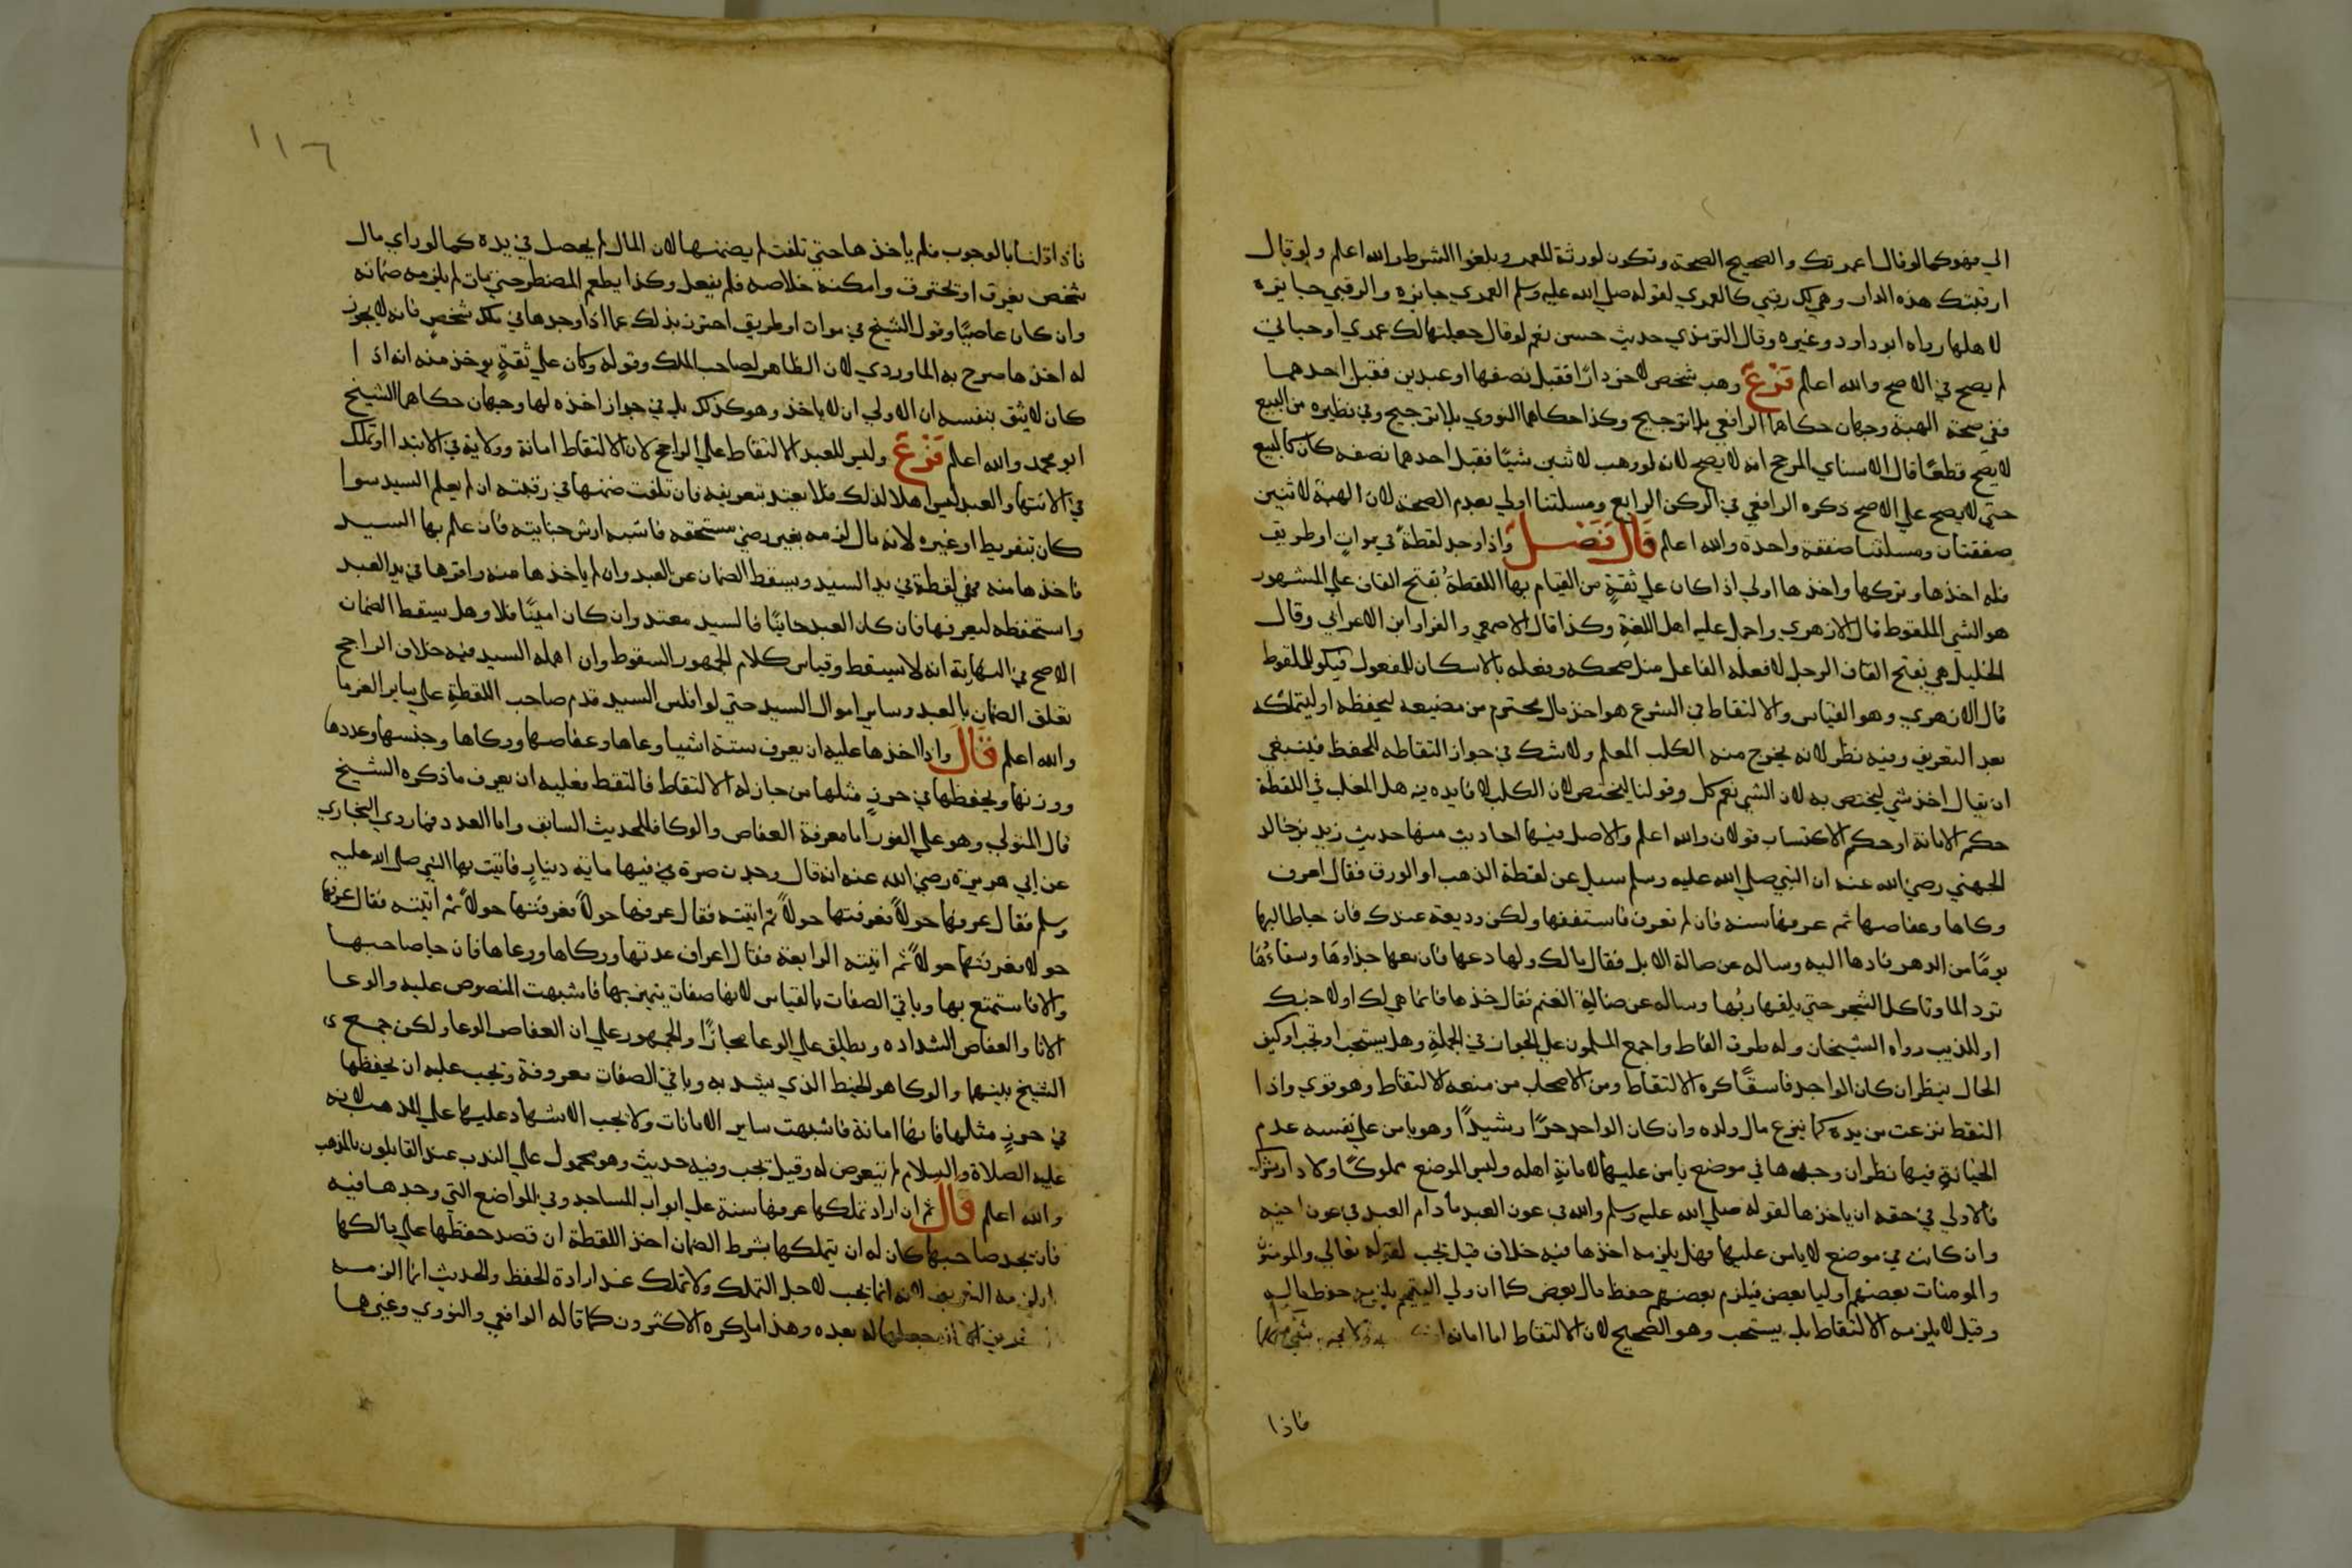 الي فهو كما لو قال اعمرتك والصحيح الصحة وتكون لورثة المعمر ويلغوا الشرط والله اعلم ولو قال
ارقبتك هذه الدار وهي لك رقبي كالعمري لقوله صلي الله عليه وسلم العمري جايزه والرقبي جايزه
لاهلها رواه ابو داود وغيره وقال الترمذي حديث حسن نعم لو قال جعلتها لك عمري او حياتي
لم يصح في الاصح والله اعلم فَرْعٌ وهب شخص لاخر دارًا فقبل نصفها او عبدين فقبل احدهما
ففي صحة الهبة وجهان حكاهما الرافعي بلا ترجيح وكذا حكاهما النووي بلا ترجيح وفي نظيره من البيع
لا يصح قطعًا قال الاسناي المرجح انه لا يصح لانه لو وهب لاثنين شيًا فقبل احدهما نصفه كان كالبيع
حتي لا يصح علي الاصح ذكره الرافعي في الركن الرابع ومسلتنا اولي بعدم الصحة لان الهبة لاثنين
صفقتان ومسلتنا صفقة واحدة والله اعلم قَالَ فَصْــل وَاذا وجد لقطةً في مواتٍ او طريق
فله اخذها وتركها واخذها اولي اذا كان علي ثقةٍ من القيام بها اللقطةُ بفتح القاف علي المشهور
هو الشي الملقوط قال الازهري واجمل عليه اهل اللغةِ وكذا قال الاصمعي والفرا وابن الاعرابي وقال
الخليل هي بفتح القاف الرجل لا فعله الفاعل مثل ضحكه وفعله بالاسكان للمفعول فيكو للملقوط
قال الازهري وهو القياس والالتقاط في الشرع هو اخذ مال محترم من مضيعه ليحفظه او ليتملكه
بعد التعريف وفيه نظر لانه يخرج منه الكلب المعلم ولا شك في جواز التقاطه للحفظ فينبغي
ان يقال اخذ شي ليختص به لان الشي نعم كل وقولنا ليختص لان الكلب لا فايده فيه هل المغلب في اللقطة
حكم الامانة او حكم الاكتساب قولان والله اعلم والاصل فيها احاديث منها حديث زيد بن خالد
الجهني رضي الله عنه ان النبي صلي الله عليه وسلم سيل عن لقطة الذهب او الورق فقال اعرف
وكاها وعفاصها ثم عرفها سنه فان لم تعرف فاستنفقها ولكن وديعة عندك فان جا طالبها
يومًا من الدهر فادها اليه وساله عن ضالة الابل فقال مالك ولها دعها فان معها حذاوهَا وسقاءهَا
ترد الما وتاكل الشجر حتي يلقها ربُها وساله عن ضالةِ الغنم فقال خذها فانما هي لك او لاخيك
او للذيب رواه الشيخان وله طرق الفاظ واجمع المسلمون علي الجواز في الجملةِ وهل يستحب او تجب او كيف
الحال ينظر ان كان الواجد فاسقًا كره الالتقاط ومن الاصحاب من منعه الالتقاط وهو قوي واذا
التقط نزعت من يده كما ينزع مال ولده وان كان الواجد حرًا رشيدًا وهو يامن علي نفسه عدم
الخيانةِ فيها نظر ان وجدها في موضع يامن عليها لامانةِ اهله وليس الموضع مملوكًا ولا دار شرك
فالاولي في حقه ان ياخذها لقوله صلي الله عليه وسلم والله في عون العبد ما دام العبد في عون اخيه
وان كانت في موضع لا يامن عليها فهل يلزمه اخذها فيه خلاف قيل تجب لقوله تعالي والمومنون
والمومنات بعضهم اوليا بعض فيلزم بعضهم حفظ مال بعض كما ان ولي اليتيم يلزمه حفظ ماله
وقيل لا يلزمه الالتقاط بل يستحب وهو الصحيح لان الالتقاط اما امانة
فاذا
١١٦
فاذا قلنا بالوجوب فلم يأخذها حتي تلفت لم يضمنها لان المال لم يحصل في يده كما لو راي مال
شخص يغرق او يحترق وامكنه خلاصه فلم يفعل وكذا يطعم المضطر حتي مات لم يلزمه ضمانه
وان كان عاصيًا وقول الشيخ في موات او طريق احترز بذلك عما اذا وجدها في ملك شخصٍ فانه لا يجوز
له اخذها صرح به الماوردي لان الظاهر لصاحب الملك وقوله وكان علي ثقةٍ يوخذ منه انه اذا
كان لا يثق بنفسه ان الاولي ان لا ياخذ وهو كذلك بل في جواز اخذه لها وجهان حكاهما الشيخ
ابو محمد والله اعلم فَرْعٌ وليس للعبد الالتقاط علي الراجح لان الالتقاط امانة وولاية في الابتدا او تملك
في الانتها والعبد ليس اهلا لذلك فلا يعتد بتعريفه فان تلفت ضمنها في رقبته ان لم يعلم السيد سوا
كان بتفريط او غيره لانه مال لزمه بغير رضي مستحقه فاشبه ارش جنايته فان علم بها السيد
فاخذها منه فهي لقطة في يد السيد ويسقط الضمان عن العبد وان لم ياخذها منه واقرها في يد العبد
واستحفظه ليعرفها فان كان العبد خاينًا فالسيد معتد وان كان امينًا فلا وهل يسقط الضمان
الاصح في النهاية انه لا يسقط وقياس كلام الجمهور السقوط وان اهمله السيد ففيه خلاف الراجح
تعلق الضمان بالعبد وساير اموال السيد حتي لو افلس السيد قدم صاحب اللقطةِ علي ساير الغرما
والله اعلم قَالَ واذا اخذها عليه ان يعرف ستة اشيا وعاها وعفاصها ووكاها وجنسها وعددها
ووزنها ويحفظها في حرزٍ مثلها من جاز له الالتقاط فالتقط فعليه ان يعرف ما ذكره الشيخ
قال المتولي وهو علي الفور اما معرفة العفاص والوكا فللحديث السابق واما العدد فما روي البخاري
عن ابي هريرة رضي الله عنه انه قال وجدت صرة في فيها ماية دينارٍ فاتيت بها النبي صلي الله عليه
وسلم فقال عرفها حولاً فعرفتها حولاً ثم اتيته فقال عرفها حولاً فعرفتها حولاً ثم اتيته فقال عرفها
حولا فعرفتها حولاً ثم اتيته الرابعة فقال اعراف عدتها ووكاها ووعاها فان جا صاحبها
والا فاستمتع بها وباقي الصفات بالقياس لانها صفات يتميز بها فاشبهت المنصوص عليه والوعا
الانا والعفاص الشداده ويطلق علي الوعا مجازًا والجمهور علي ان العفاص الوعا ولكن جمع
الشيخ بينهما والوكا هو الخيط الذي يشد به وباقي الصفات معروفة وتجب عليه ان يحفظها
في حرزٍ مثلها فانها امانة فاشبهت ساير الامانات ولا يجب الاشهاد عليها علي المذهب لانه
عليه الصلاة والسلام لم يتعرض له وقيل تجب وفيه حديث وهو محمول علي الندب عند القايلون بالمذهب
والله اعلم قَالَ ثم ان اراد تملكها عرفها سنة علي ابواب المساجد وفي المواضع التي وجدها فيه
فان يجد صاحبها كان له ان يتملكها بشرط الضمان اخذ اللقطة ان قصد حفظها علي مالكها
لم يلزمه التعريف لانه انما يجب لاجل التملك ولا تملك عند ارادة الحفظ والحديث انما الزمه
جعلها له بعده وهذا ما ذكره الاكثرون كما قاله الرافعي والنووي وغيرهما